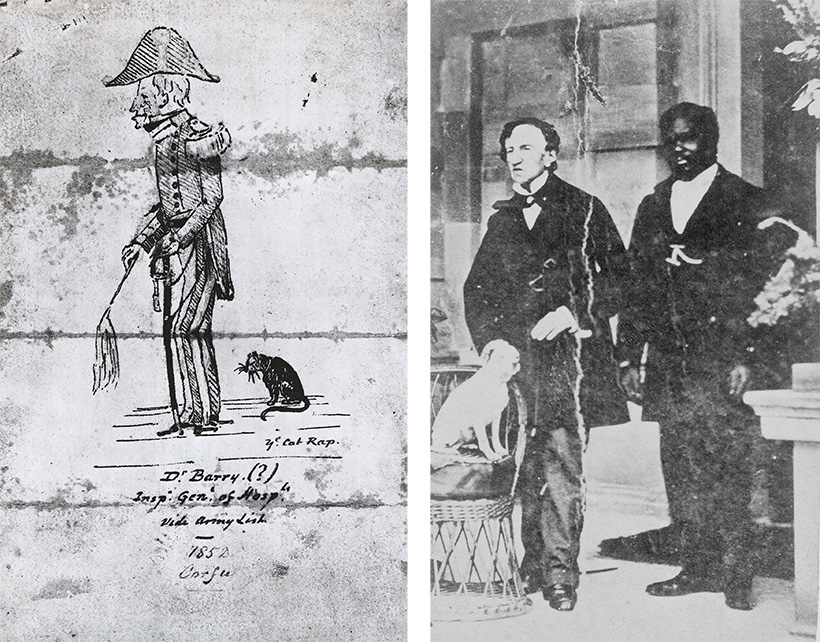 yᵉ Cat Rap.
Dʳ Barry. (?)
Inspʳ. Genˡ. of Hospˡˢ
Vide Army List.
1852
Corfu